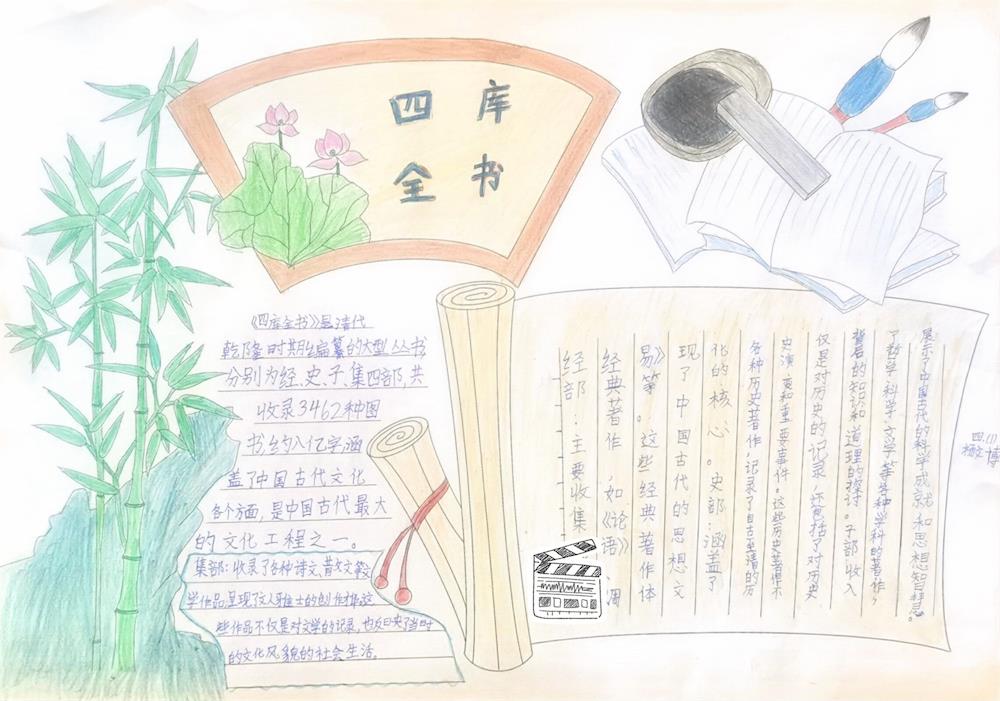 四库
全书
《四库全书》是清代
乾隆时期编纂的大型丛书
分别为经、史、子、集四部,共
收录3462种图
书约八亿字,涵
盖了中国古代文化
各个方面,是中国古代最大
的文化工程之一。
集部:收录了各种诗文、散文等文
学作品,呈现了文人雅士的创作才华,这
些作品不仅是对文学的记录,也反映了当时
的文化风貌的社会生活。
经部:主要收集
经典著作,如《论语》、周
易》等。这些经典著作体
现了中国古代的思想文
化的核心。史部:涵盖了
各种历史著作,记录了自古至清的历
史演变和重要事件。这些历史著作不
仅是对历史的记录,还包括了对历史
背后的知识和道理的探讨。子部:收入
了哲学、科学、文学等各种学科的著作,
展示了中国古代的科学成就和思想智慧。
四.(1)